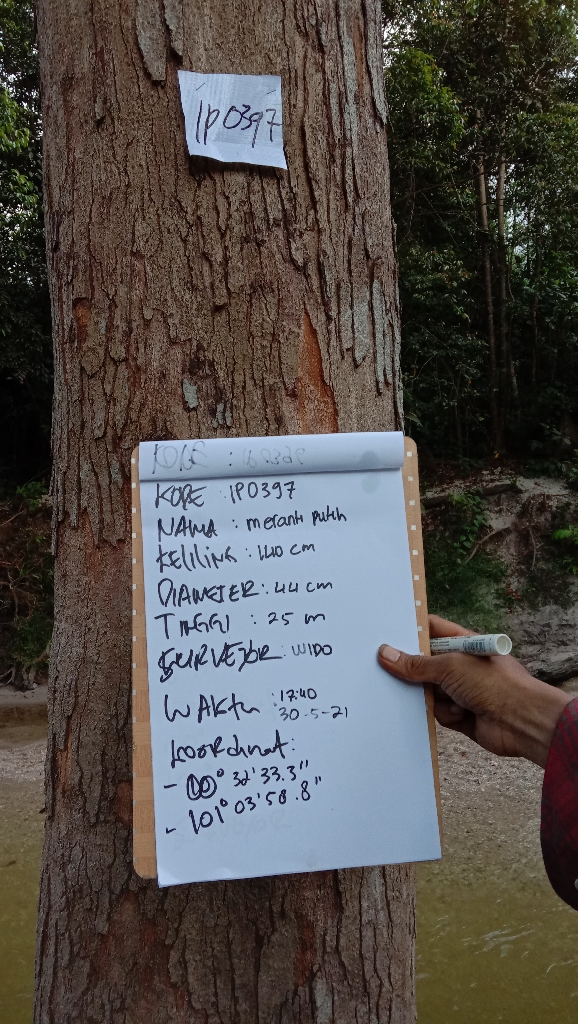 IP0397
KODE : IP0397
NAMA : meranti putih
KELILING : 140 cm
DIAMETER : 44 cm
TINGGI : 25 m
SURVEYOR : WIDO
WAKTU : 17:40
30-5-21
Koordinat :
- 00° 32' 33.3"
- 101° 03' 58.8"